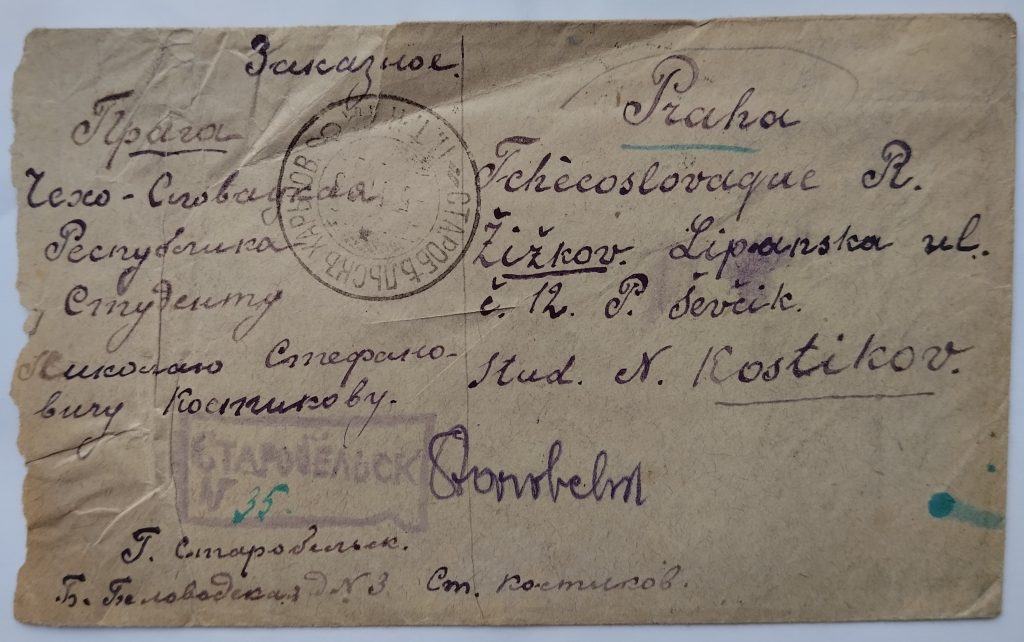 Заказное.
Прага
Чехо-Словацкая
Республика
Студенту
Николаю Стефано-
вичу Костикову.
Praha
Tchècoslovaque R.
Žižkov. Lipanska ul.
č. 12. P. Ševčik.
Stud. N. Kostikov.
СТАРОБѢЛЬСКЪ ХАРЬКОВ
СТАРОБЕЛЬСК
№ 35.
Starobelsk
Г. Старобельск.
Б. Беловодская д № 3 Ст. Костиков.